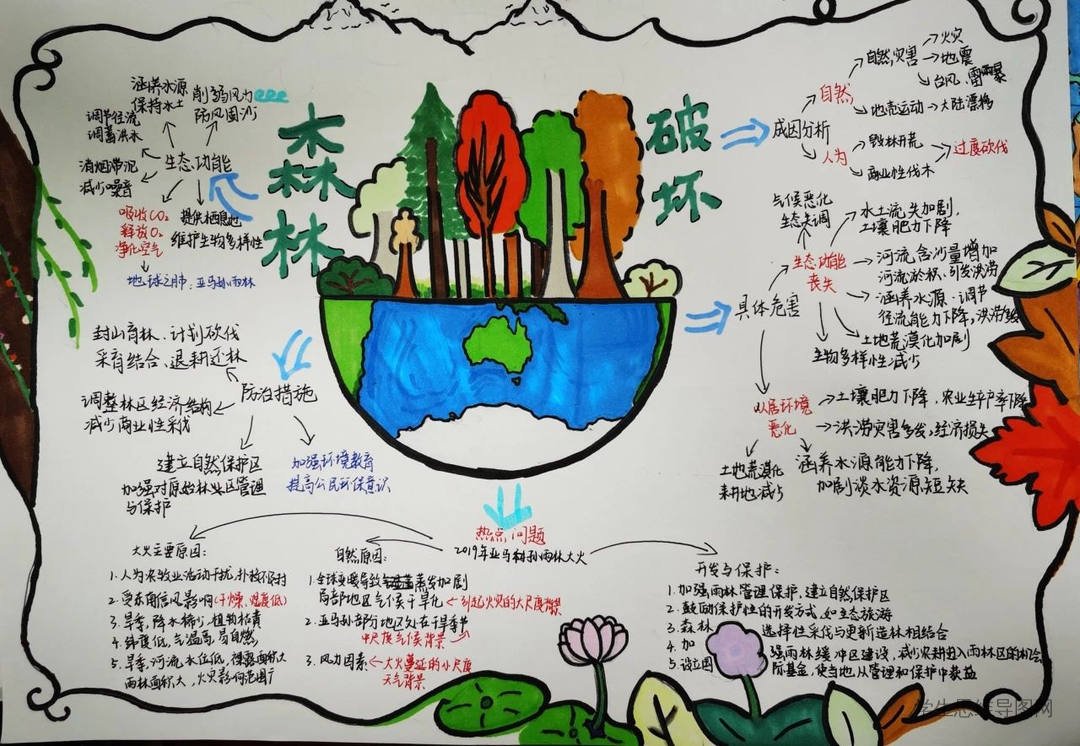 森林
破坏
涵养水源
保持水土
削弱风力
防风固沙
调节径流
调蓄洪水
消烟滞泥
减少噪音
生态功能
吸收CO₂
释放O₂
净化空气
提供栖息地
维护生物多样性
地球之肺：亚马孙雨林
成因分析
自然
自然灾害
火灾
地震
台风、雷暴
地壳运动
大陆漂移
人为
毁林开荒
商业性伐木
过度砍伐
具体危害
生态功能
丧失
气候恶化
生态失调
水土流失加剧，
土壤肥力下降
河流含沙量增加
河流淤积，引发洪涝
涵养水源、调节
径流能力下降，洪涝
土地荒漠化加剧
生物多样性减少
人居环境
恶化
土壤肥力下降，农业生产率下降
洪涝灾害多发，经济损失
涵养水源能力下降，
加剧淡水资源短缺
土地荒漠化
耕地减少
防治措施
封山育林、计划砍伐
采育结合、退耕还林
调整林区经济结构
减少商业性采伐
建立自然保护区
加强对原始林业区管理
与保护
加强环境教育
提高公民环保意识
热点问题
2019年亚马孙雨林大火
大火主要原因：
1.人为农牧业活动干扰，扑救不及时
2.受东南信风影响（干燥、湿度低）
3.旱季，降水稀少，植物枯黄
4.纬度低，气温高，易自燃，
5.旱季，河流水位低，裸露面积大
雨林面积大，火灾影响范围广
自然原因：
1.全球变暖导致蒸发加剧
局部地区气候干旱化←引起火灾的大尺度背景
2.亚马孙部分地区处在干旱季节
中尺度气候背景
3.风力因素←大火蔓延的小尺度
天气背景
开发与保护：
1.加强雨林管理保护，建立自然保护区
2.鼓励保护性的开发方式，如生态旅游
3.森林 选择性采伐与更新造林相结合
4.加 强雨林缓冲区建设，减少农耕进入雨林区的机会
5.设立国 际基金，使当地从管理和保护中获益
学生思维导图网